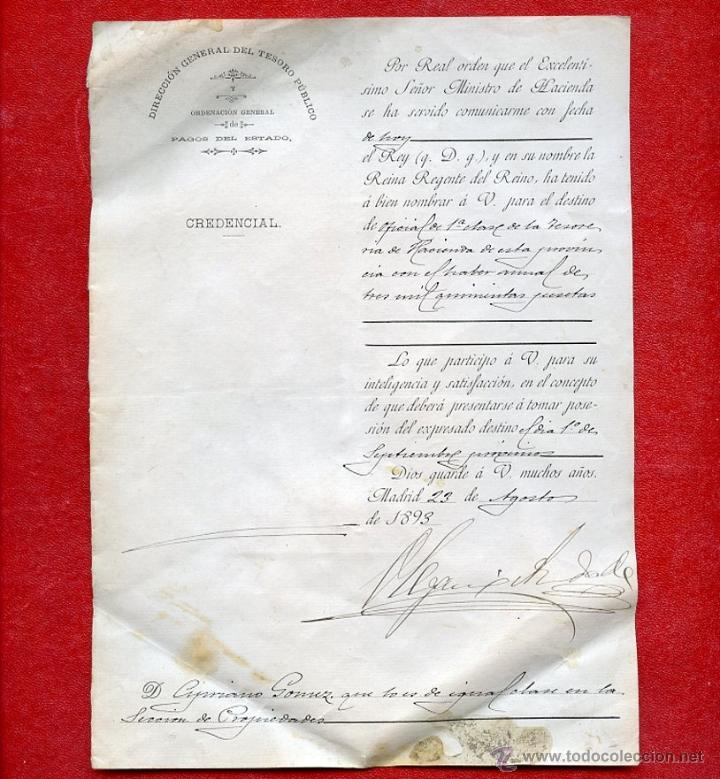 DIRECCIÓN GENERAL DEL TESORO PÚBLICO
Y
ORDENACIÓN GENERAL
de
PAGOS DEL ESTADO,
CREDENCIAL.
Por Real orden que el Excelentí-
simo Señor Ministro de Hacienda
se ha servido comunicarme con fecha
de hoy
el Rey (q. D. g.), y en su nombre la
Reina Regente del Reino, ha tenido
á bien nombrar á V. para el destino
de Oficial de 1ª clase de la Tesore
ria de Hacienda de esta provin
cia con el haber anual de
tres mil quinientas pesetas
Lo que participo á V. para su
inteligencia y satisfacción, en el concepto
de que deberá presentarse á tomar pose-
sión del expresado destino el dia 1º de
Septiembre próximo
Dios guarde á V. muchos años.
Madrid 23 de Agosto
de 1893
D. Cipriano Gomez que lo es de igual clase en la
Sección de Propiedades
www.todocoleccion.net